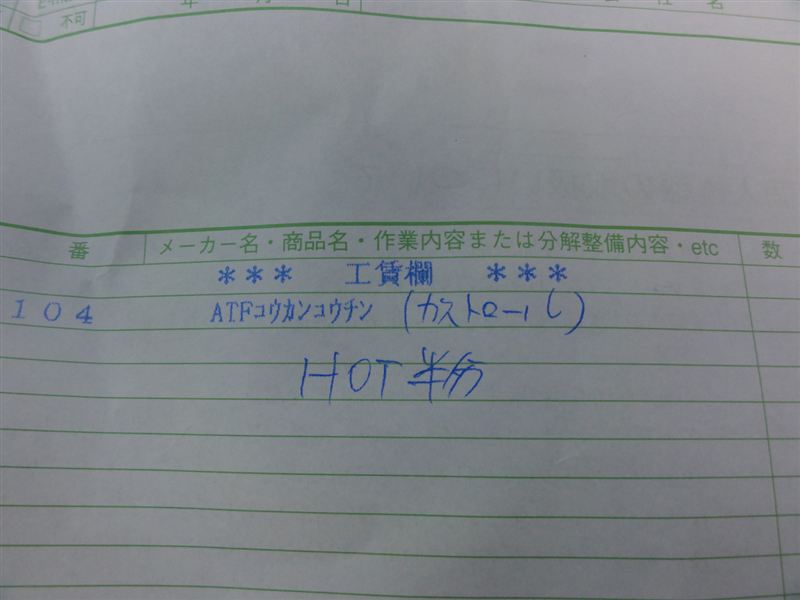 不可
年 月 日
社 名
番 メーカー名・商品名・作業内容または分解整備内容・etc 数
＊＊＊ 工賃欄 ＊＊＊
104 ATFコウカンコウチン (カストロール)
HOT半分